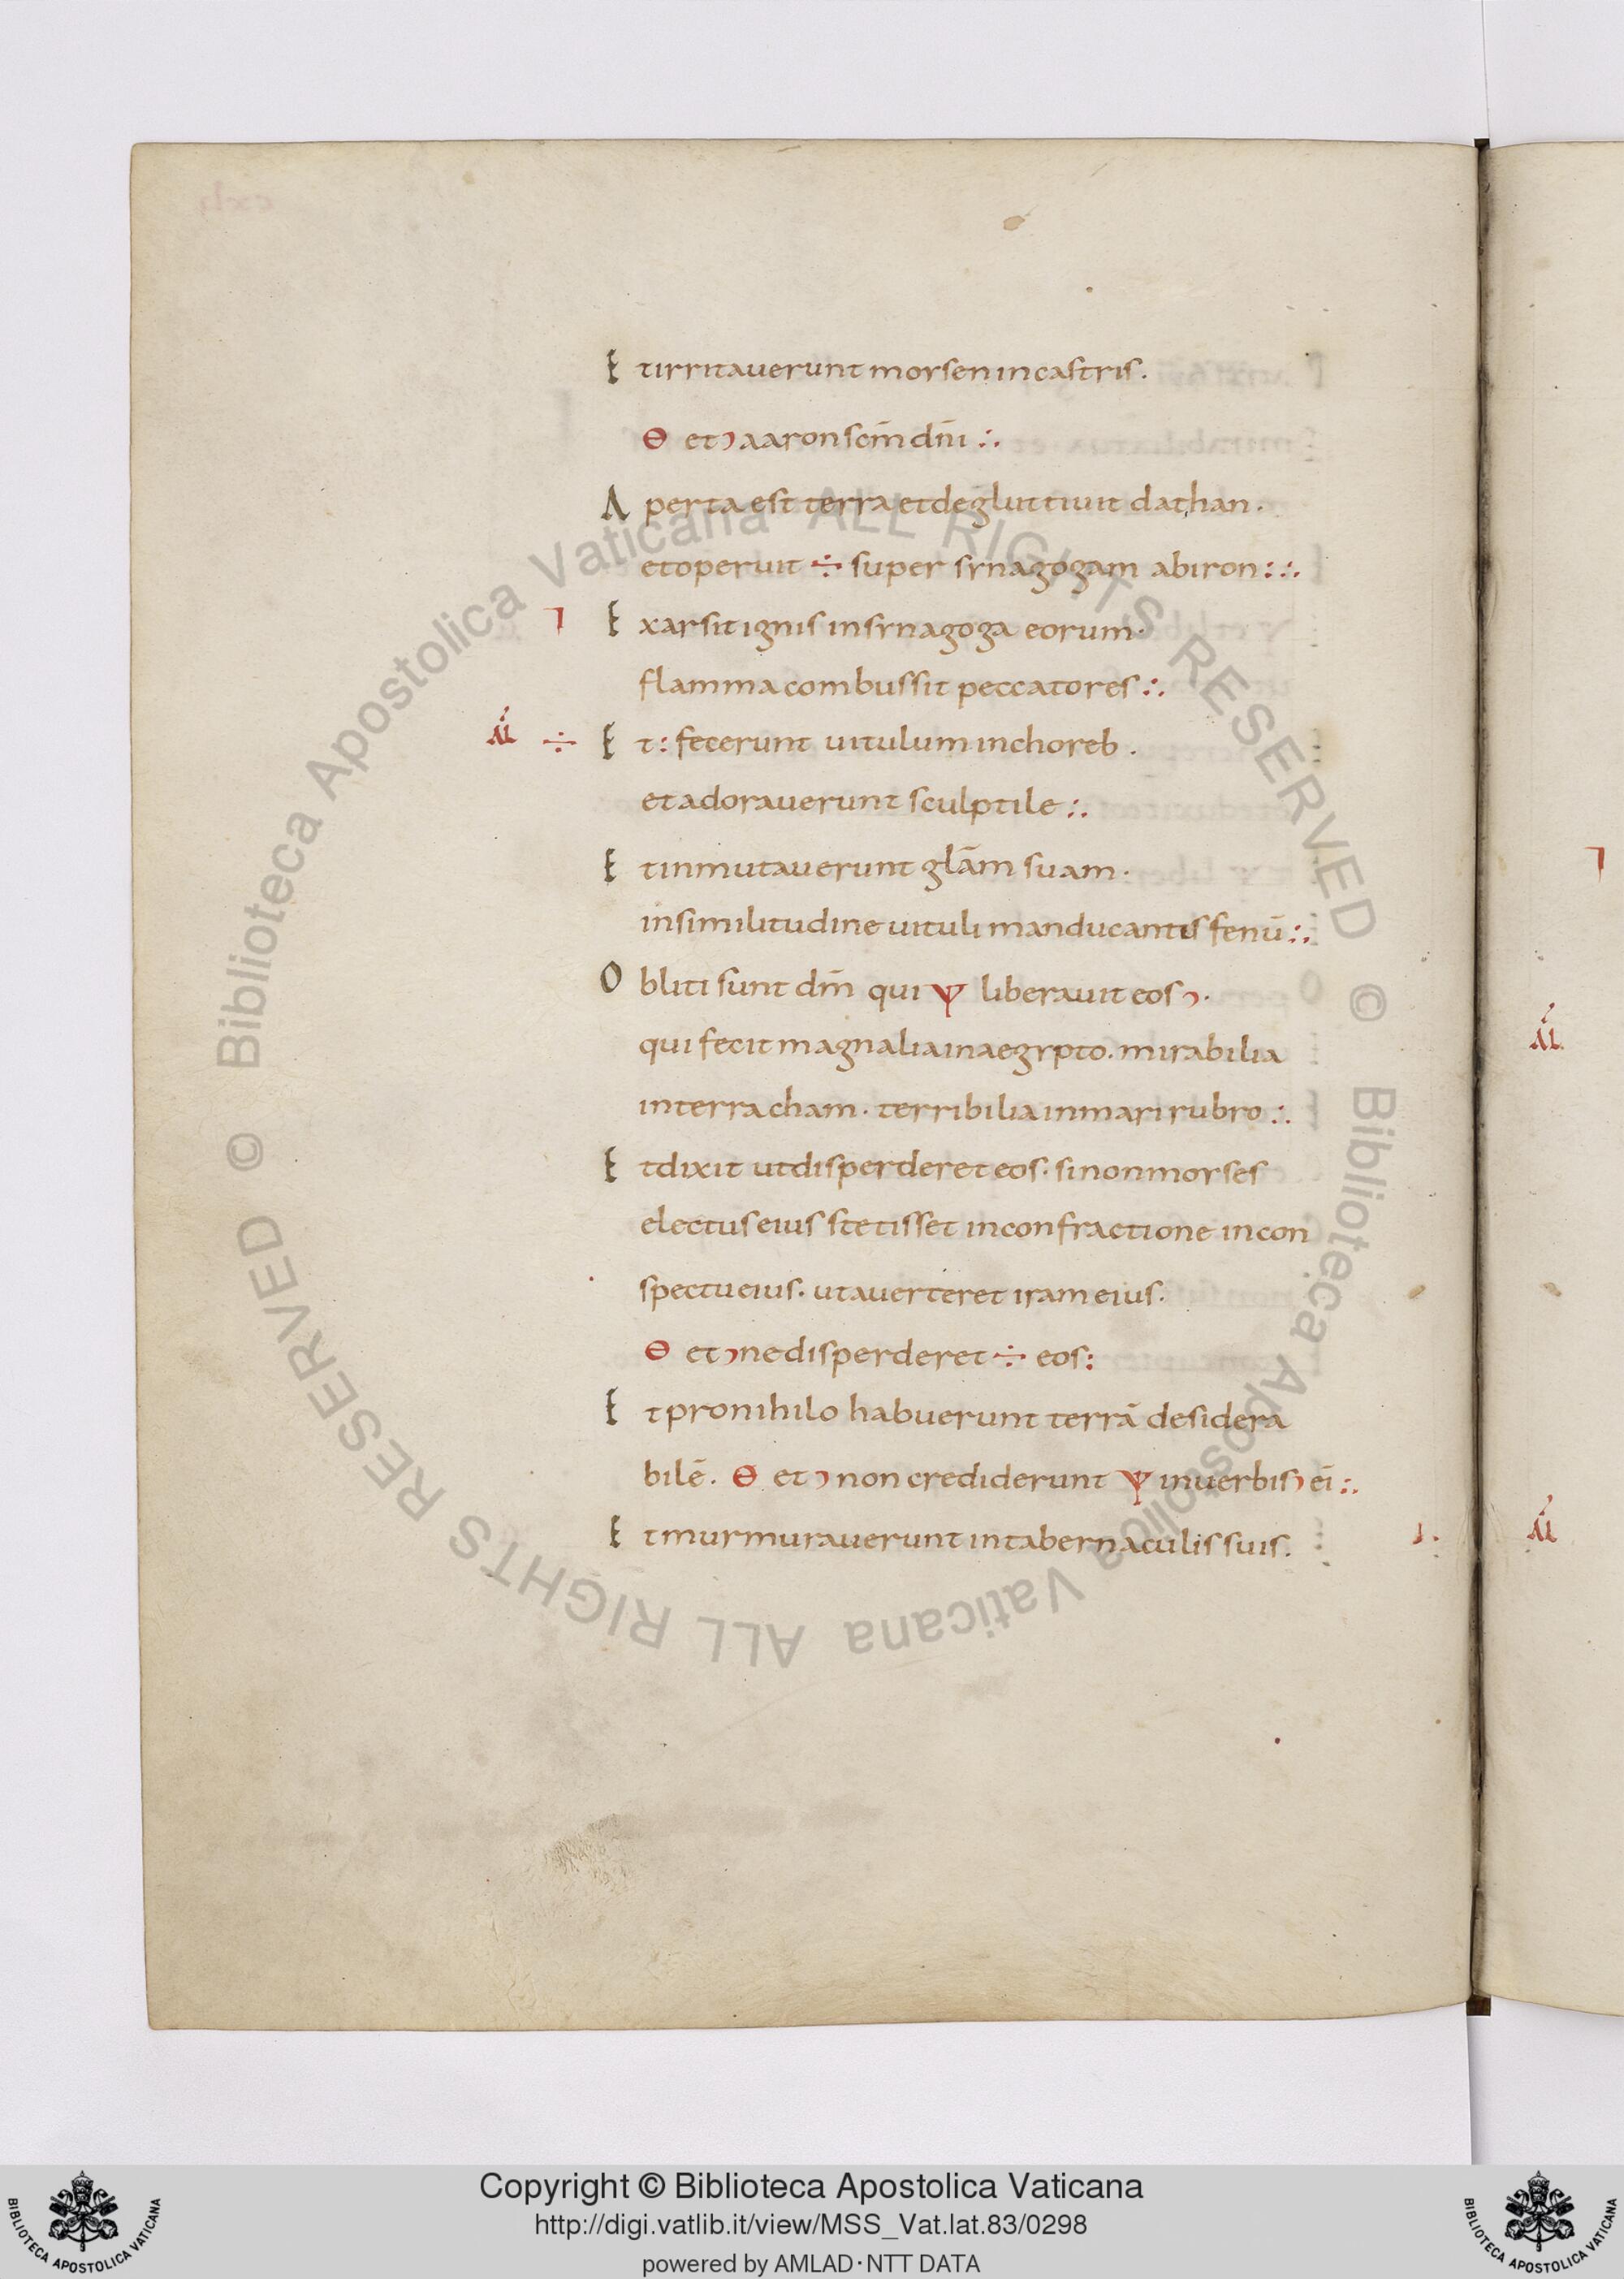 Et irritauerunt moysen in castris.
Θ et ͻ aaron scm̄ dn̄i :.
Aperta est terra et degluttiuit dathan.
et operuit ÷ super synagogam abiron : :.
Exarsit ignis in synagoga eorum.
flamma combussit peccatores :.
÷ Et : fecerunt uitulum in choreb .
et adorauerunt sculptile :.
Et inmutauerunt glām suam.
in similitudine uituli manducantis fenū :.
Obliti sunt dm̄ qui Ψ liberauit eos ͻ .
qui fecit magnalia in aegypto. mirabilia
in terra cham. terribilia in mari rubro :.
Et dixit ut disperderet eos. si non moyses
electus eius stetisset in confractione in con
spectu eius. ut auerteret iram eius.
Θ et ͻ ne disperderet ÷ eos :
Et pro nihilo habuerunt terrā desidera
bilē. Θ et ͻ non crediderunt Ψ in uerbis ͻ eī :.
Et murmurauerunt in tabernaculis suis.
© Biblioteca Apostolica Vaticana ALL RIGHTS RESERVED © Biblioteca Apostolica Vaticana ALL RIGHTS RESERVED
Copyright © Biblioteca Apostolica Vaticana
http://digi.vatlib.it/view/MSS_Vat.lat.83/0298
powered by AMLAD·NTT DATA
BIBLIOTECA APOSTOLICA VATICANA
BIBLIOTECA APOSTOLICA VATICANA